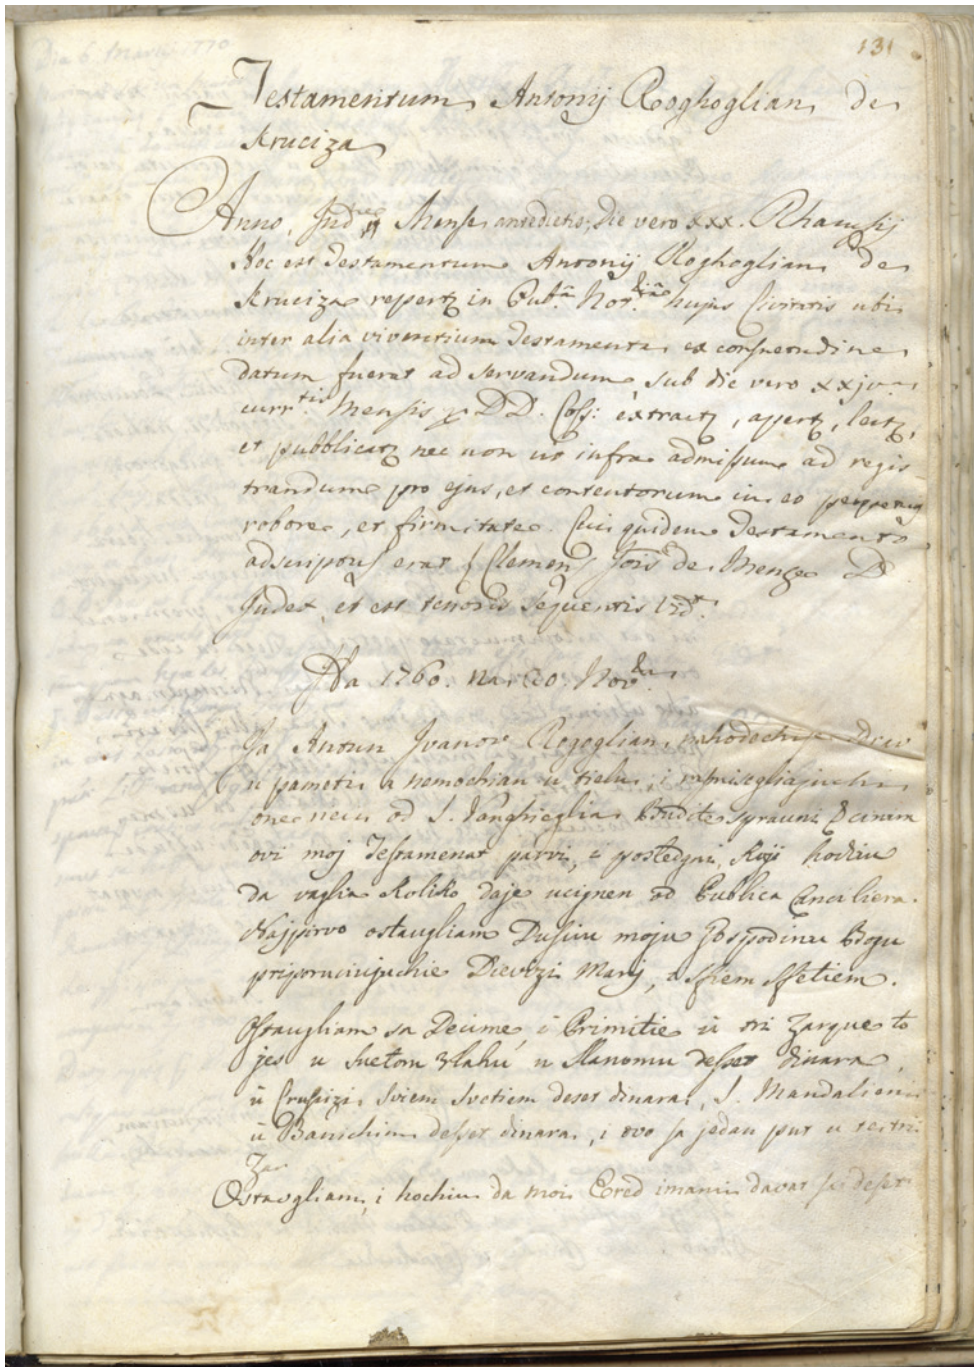 131
Testamentum Antonij Roghoglian de
Kruciza
Anno, Ind.ne, Mense antedictis, Die vero xxx. Rhacusij
Hoc est Testamentum Antonij Roghoglian de
Kruciza repert in Pub.a Not.ria hujus Civitatis ubi
inter alia viventium Testamenta ex consuetudine
datum fuerat ad servandum, sub die vero xxjv
curr.tis Mensis p DD. Coss: extract, apert, lect,
et pubblicat nec non ut infra admissum ad regis
trandum pro ejus, et contentorum in eo perpetuo
robore, et firmitate. Cui quidem Testamento
adscriptus erat S Clemens Jois de Menze D
Judex, et est tenoris sequentis Vidt.
Na 1760. na 20. Nov.bra
Ja Antun Ivanov Rogoglian, nahodechise sdrav
u pameti a nemochian u tielu, i rasmisegliajuchi
one rieci od S. Vanghieglia Budite spravni Cinim
ovi moj Testamenat parvi, i posledgni, Koji hochiu
da vaglia Koliko daje ucignen od Publica Canciliera.
Najpirvo ostaugliam Dusciu moju Gospodinu Bogu
priporucivjuchie Dievizi Marij, i sfiem sfetiem.
Ostaugliam sa Decime, i Primitie u tri Zarque to
jes u Svetom Vlahu, u Slanomu desset dinara,
u Cruscizi Sviem Svetiem deset dinara, S. Mandalieni
u Banichim desset dinara, i ovo sa jedan put u te tri
Zar
Ostavgliam, i hochiu da moi Ered imam davat desset